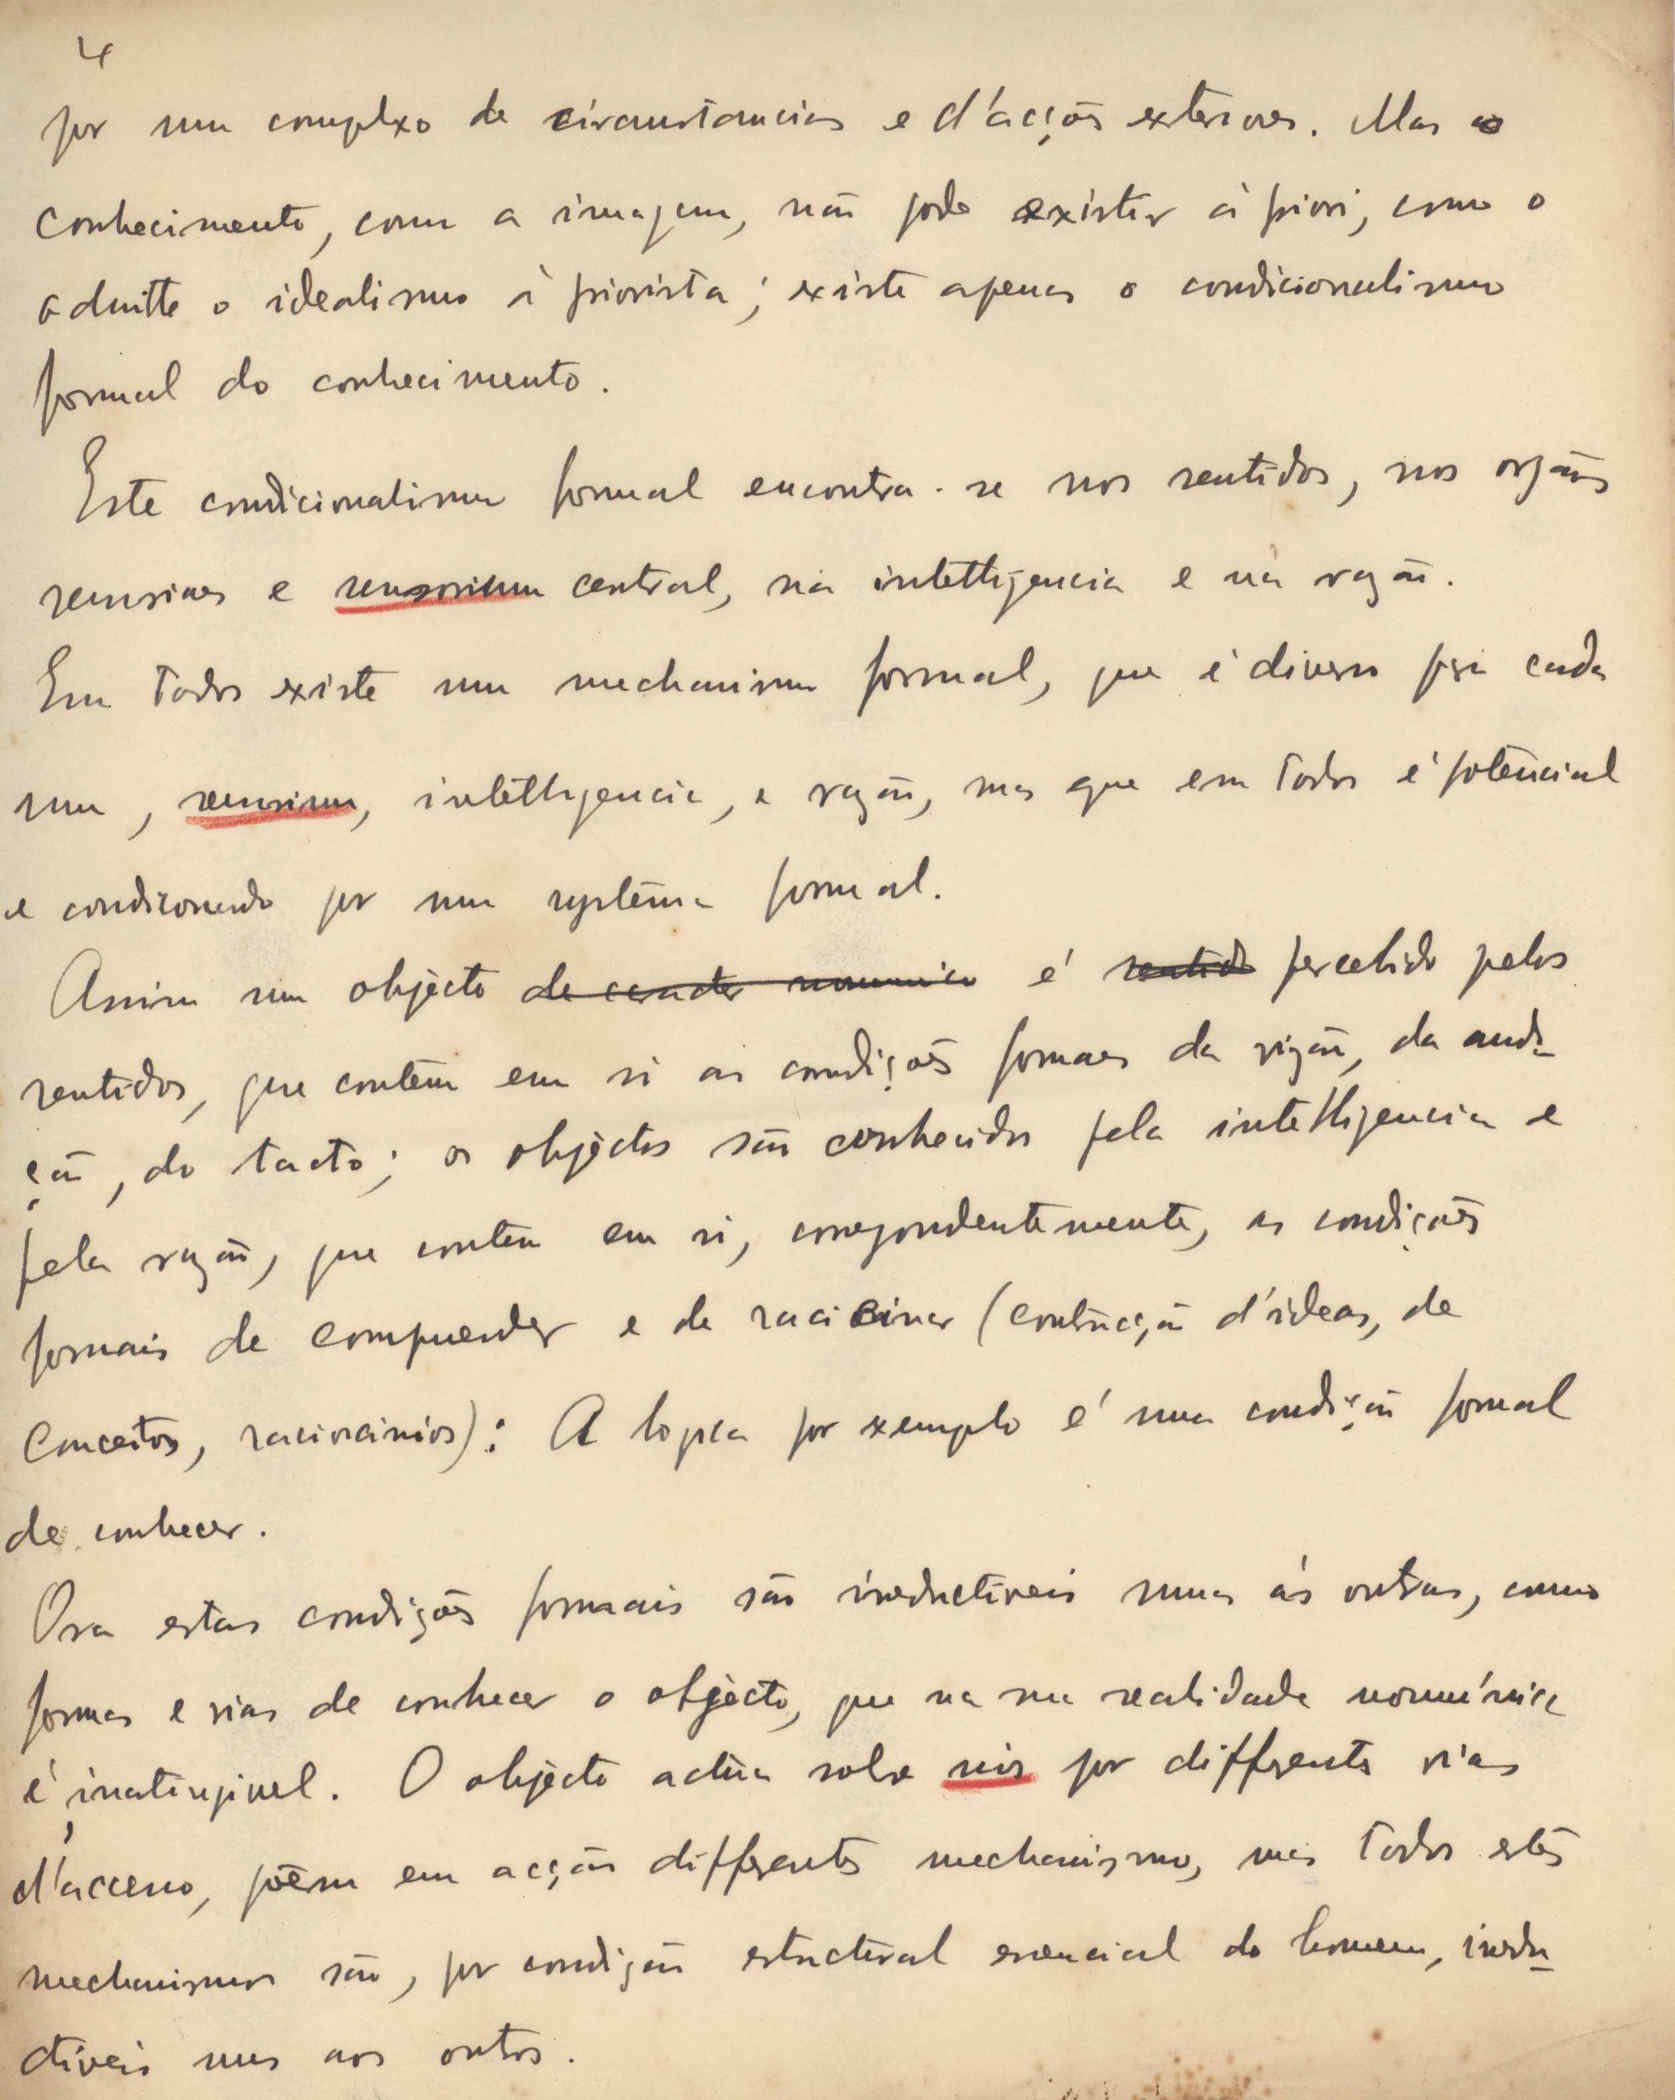 4
por um complexo de circumstancias e d'acções exteriores. Mas o
conhecimento, como a imagem, não pode existir à priori, como o
admitte o idealismo à priorista; existe apenas o condicionalismo
formal do conhecimento.
Este condicionalismo formal encontra-se nos sentidos, nos orgãos
sensiaes e sensorium central, na intelligencia e na razão.
Em todos existe um mechanismo formal, que é diverso para cada
um, sensorium, intelligencia, e razão, mas que em todos é potencial
e condicionado por um systema formal.
Assim um objecto de caracter noumenico é sentido percebido pelos
sentidos, que contêm em si as condições formaes da visão, da audi-
ção, do tacto; os objectos são conhecidos pela intelligencia e
pela razão, que contêm em si, correspondentemente, as condições
formais de comprender e de raciocinar (contrucção d'ideas, de
conceitos, raciocinios): A logica por exemplo é uma condição formal
de conhecer.
Ora estas condições formaais são irreductiveis umas ás outras, como
formas e vias de conhecer o objecto, que na sua realidade nouménica
é inatingivel. O objecto actúa sobre nós por differentes vias
d'accesso, põem em acção differentes mechanismos, mas todos estes
mechanismos são, por condição estructural essencial do homem, irredu-
ctiveis uns aos outros.